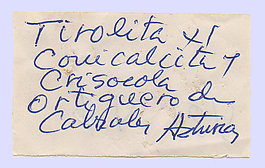 Tirolita y/
Conicalcita y
Crisocola
Ortiguero de
Cabrales Asturias